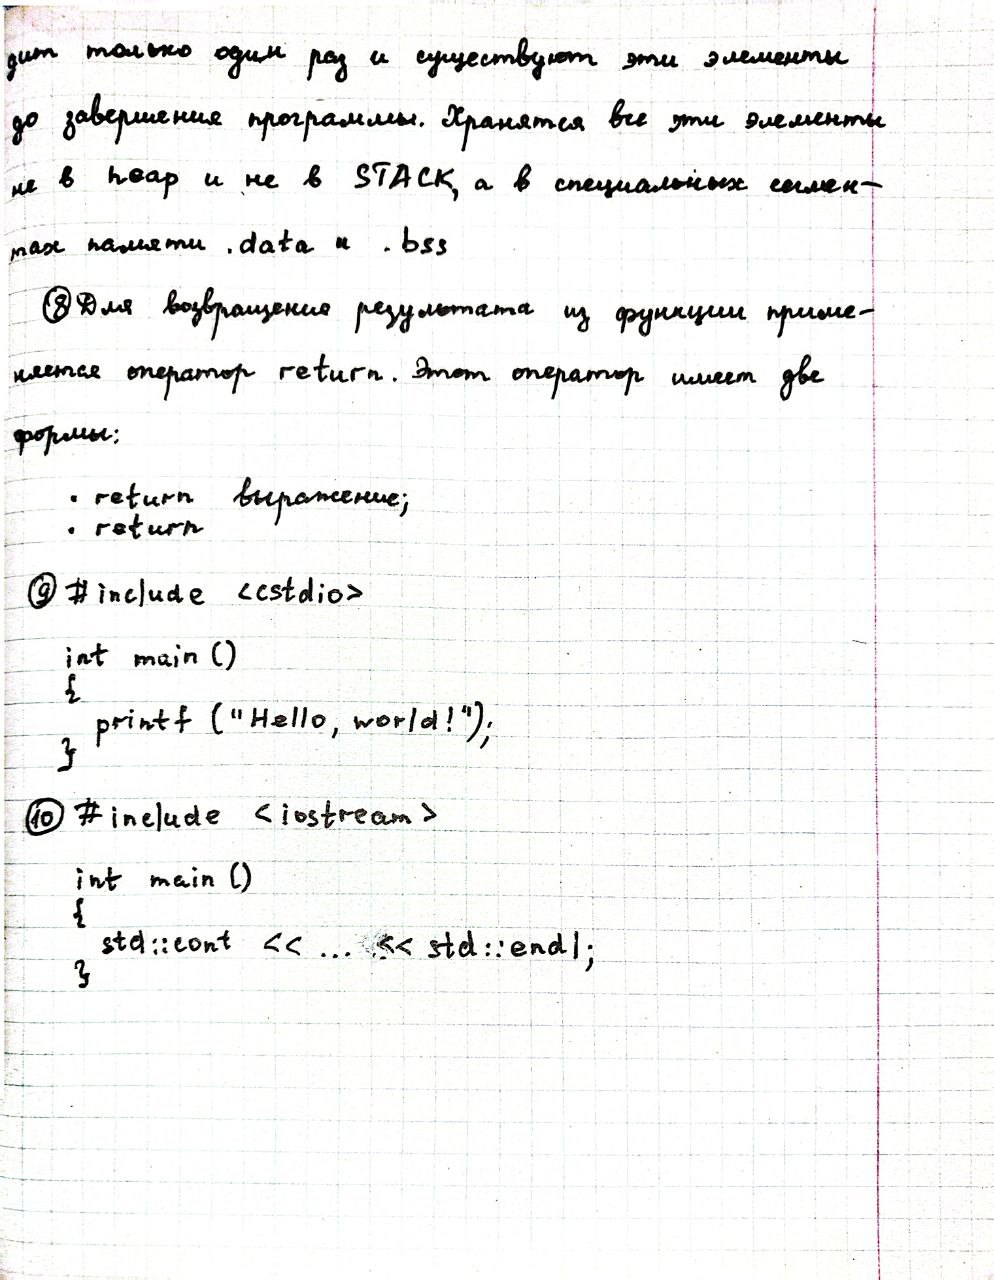 дит только один раз и существуют эти элементы
до завершения программы. Хранятся все эти элементы
не в heap и не в STACK, а в специальных сегмен-
тах памяти .data и .bss
⑧ Для возвращение результата из функции приме-
няется оператор return. Этот оператор имеет две
формы:
• return выражение;
• return
⑨ #include <cstdio>
int main ()
{
printf ("Hello, world!");
}
⑩ #include <iostream>
int main ()
{
std::cont << ... << std::endl;
}